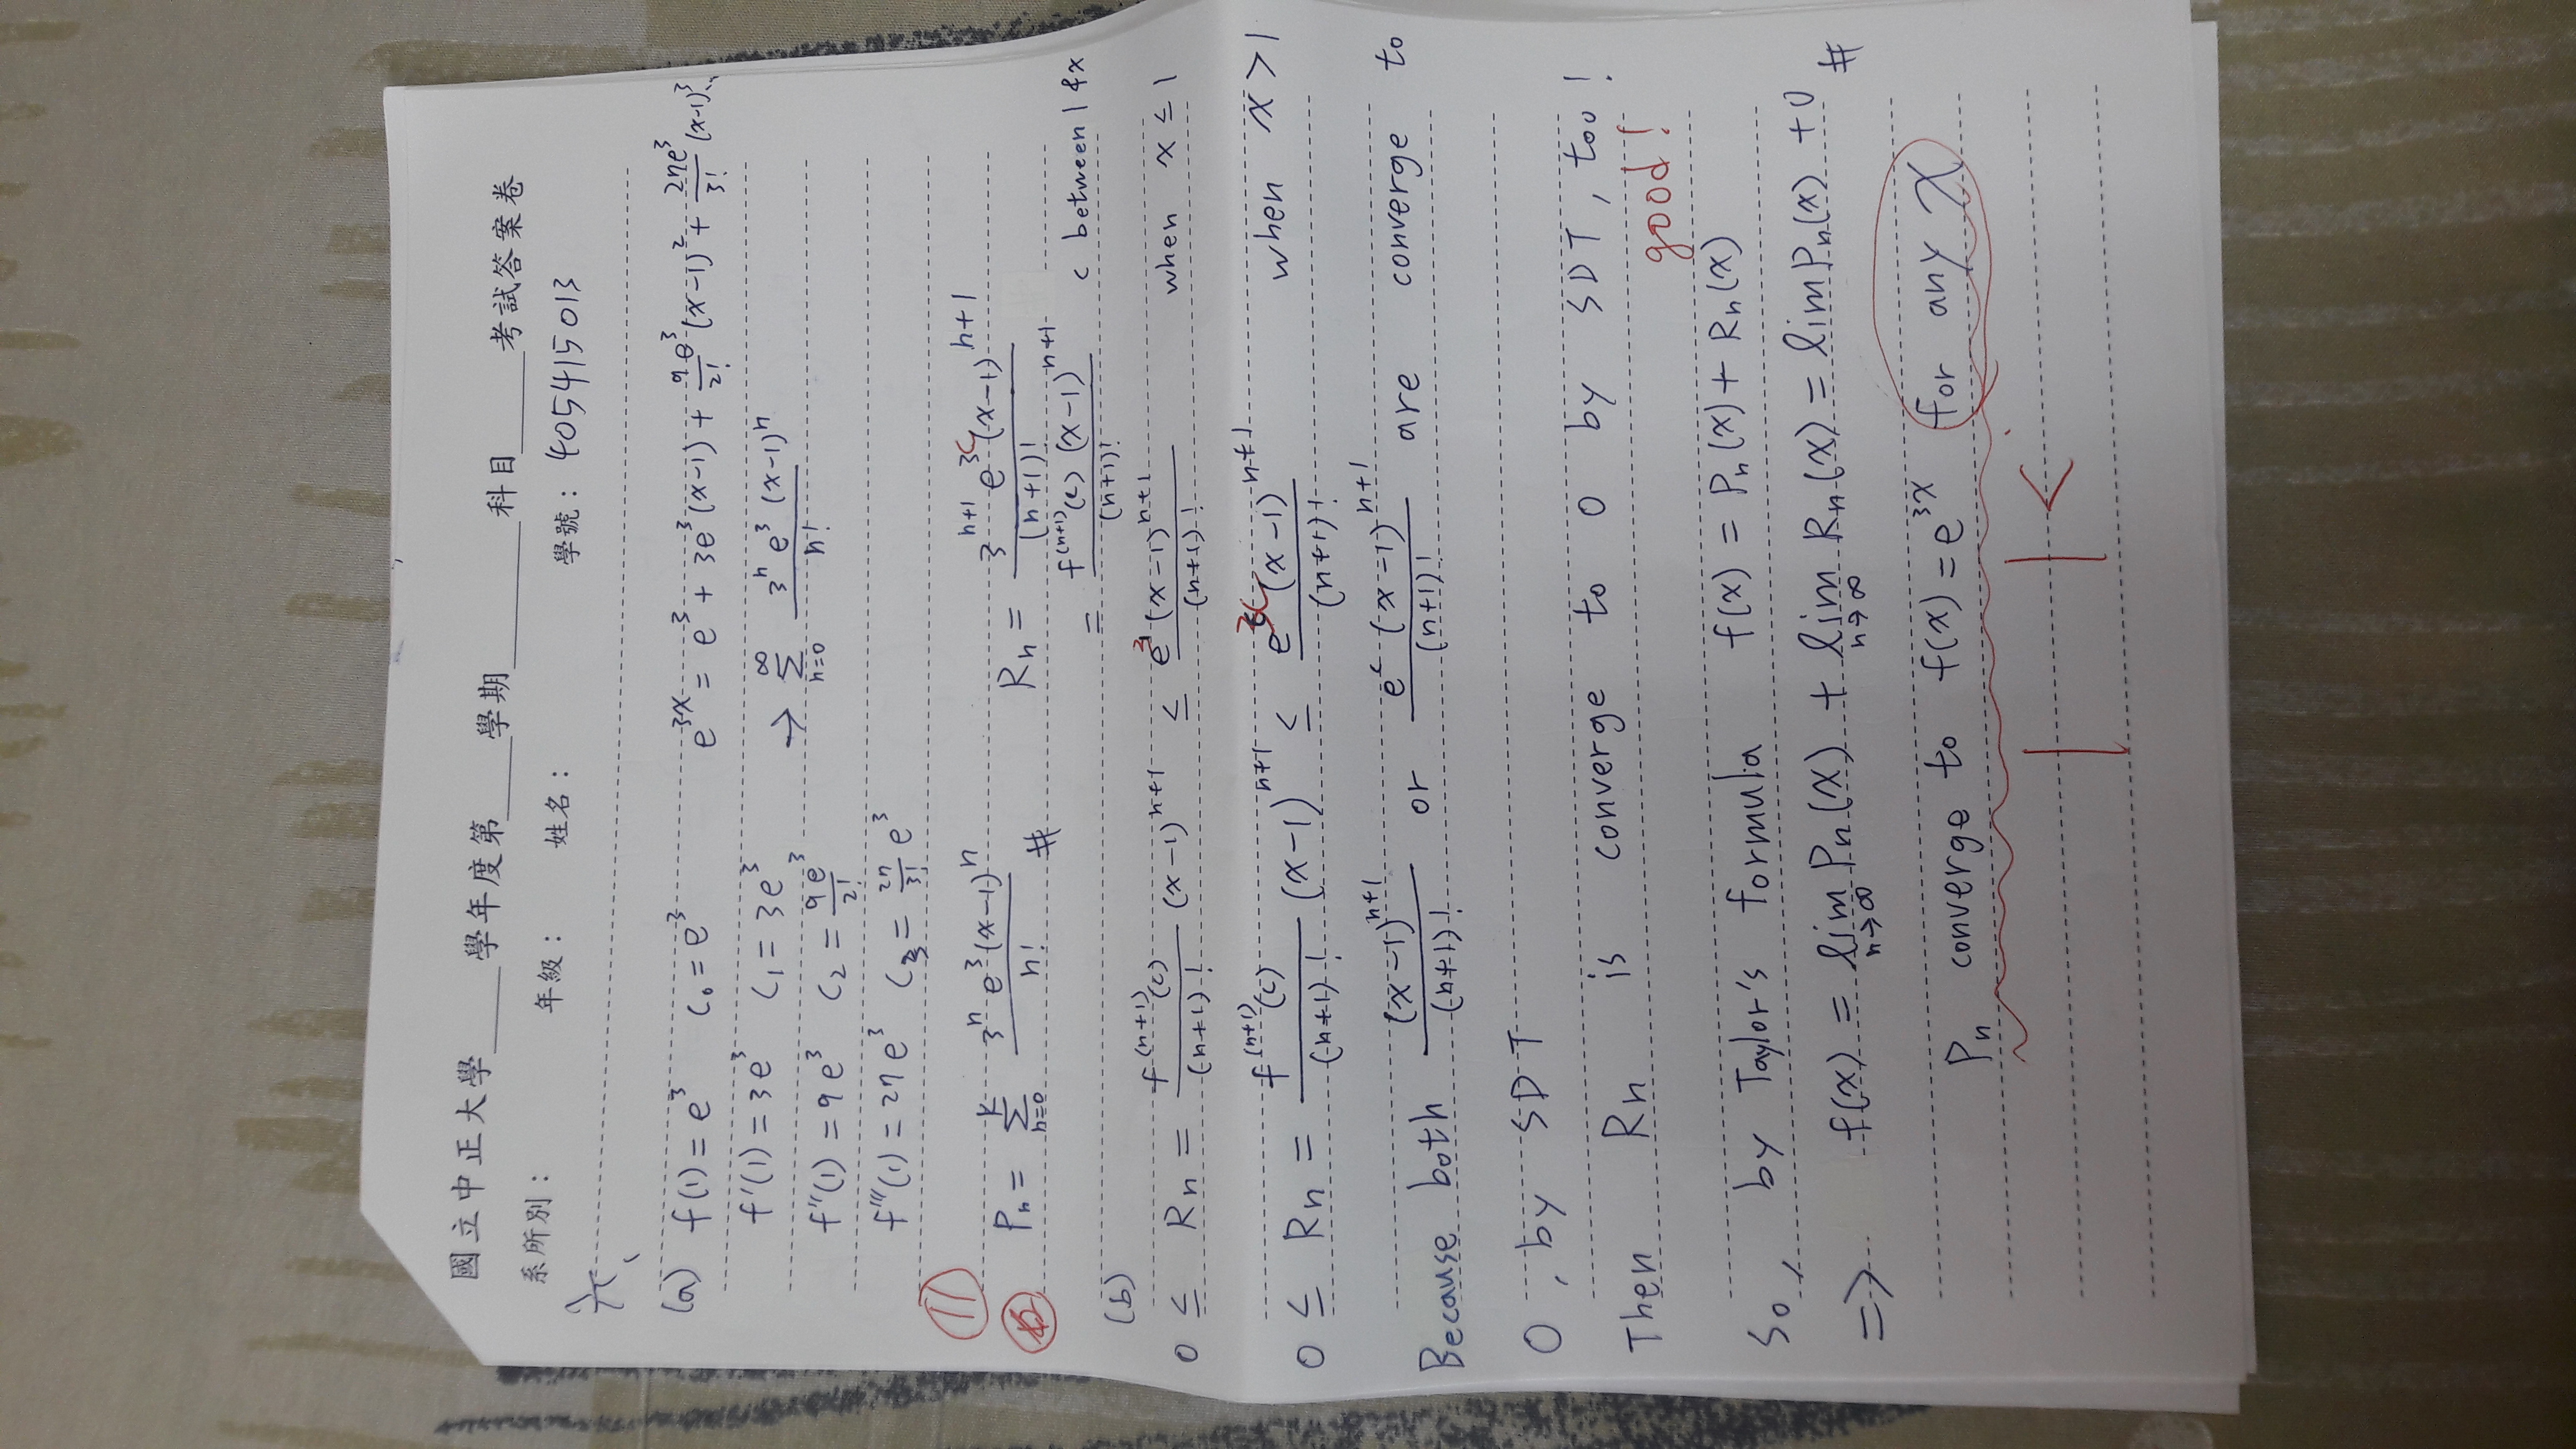 國立中正大學____學年度第____學期________科目_____考試答案卷
系所別： 年級： 姓名： 學號：405415013
六、
(a) f(1) = e³ C₀ = e³ e^{3x} = e³ + 3e³(x-1) + \frac{9e³}{2!}(x-1)² + \frac{27e³}{3!}(x-1)³...
f'(1) = 3e³ C₁ = 3e³ → \sum_{n=0}^{∞} \frac{3^n e³ (x-1)^n}{n!}
f''(1) = 9e³ C₂ = \frac{9e³}{2!}
f'''(1) = 27e³ C₃ = \frac{27}{3!} e³
11
Pn = \sum_{n=0}^{k} \frac{3^n e³(x-1)^n}{n!} # Rn = \frac{3^{n+1} e^{3c}(x-1)^{n+1}}{(n+1)!}
= \frac{f^{(n+1)}(c) (x-1)^{n+1}}{(n+1)!} c between 1 & x
(b)
0 ≤ Rn = \frac{f^{(n+1)}(c)}{(n+1)!} (x-1)^{n+1} ≤ \frac{e^{3}(x-1)^{n+1}}{(n+1)!} when x ≤ 1
0 ≤ Rn = \frac{f^{(n+1)}(c)}{(n+1)!} (x-1)^{n+1} ≤ \frac{e^{3c}(x-1)^{n+1}}{(n+1)!} when x > 1
Because both \frac{(x-1)^{n+1}}{(n+1)!} or \frac{e^c (x-1)^{n+1}}{(n+1)!} are converge to
0, by SDT
Then Rn is converge to 0 by SDT, too!
good!
So, by Taylor's formula f(x) = Pn(x) + Rn(x)
=> f(x) = \lim_{n→∞} Pn(x) + \lim_{n→∞} Rn(x) = lim Pn(x) + 0 #
Pn converge to f(x) = e^{3x} for any x